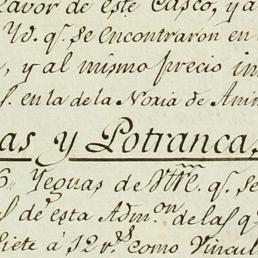 favor de este Casco, y a
Yd. q.e se encontraron en l
, y al mismo precio in
s. en la de la Noria de Anim
as y Potrancas
6 Yeguas de Vtre. q.e se
s de esta Adm.on de las q
siete á 12 r.s como Vincul